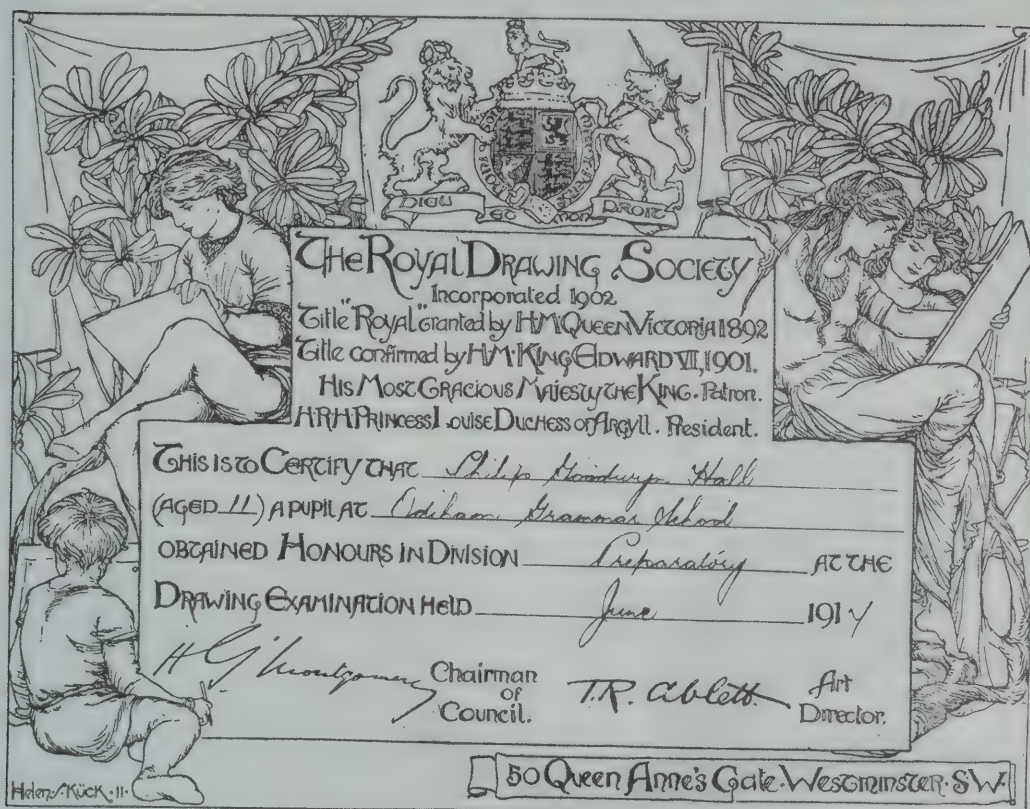 DIEU ET MON DROIT
The Royal Drawing Society
Incorporated 1902
Title "Royal" granted by H.M. Queen Victoria 1892
Title confirmed by H.M. King Edward VII, 1901.
His Most Gracious Majesty the King. Patron.
H.R.H Princess Louise Duchess of Argyll. President.
This is to Certify that Philip Hall
(aged 11) a pupil at Odiham Grammar School
obtained Honours in Division Preparatory at the
Drawing Examination held June 1914
H Montgomery Chairman of Council. T.R. Ablett. Art Director.
Helen S. Kück. 11.
50 Queen Anne's Gate. Westminster. S.W.